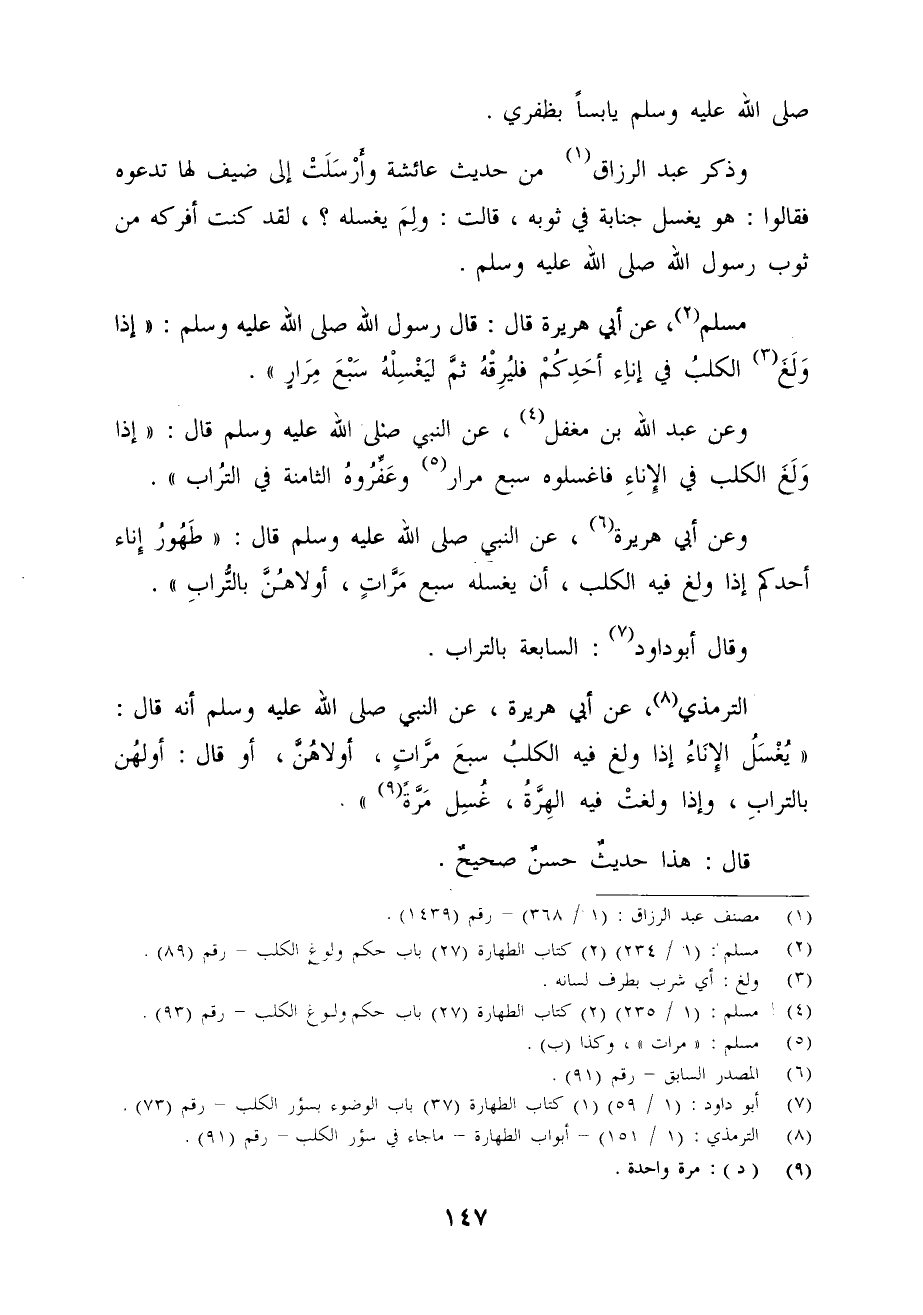 صلى الله عليه وسلم يابساً بظفري .
وذكر عبد الرزاق(١) من حديث عائشة وأَرْسَلَتْ إلى ضيف لها تدعوه
فقالوا : هو يغسل جنابة في ثوبه ، قالت : ولِمَ يغسله ؟ ، لقد كنت أفركه من
ثوب رسول الله صلى الله عليه وسلم .
مسلم(٢)، عن أبي هريرة قال : قال رسول الله صلى الله عليه وسلم : « إذا
وَلَغَ(٣) الكلبُ في إناءِ أحَدِكُمْ فليُرِقْهُ ثمَّ ليَغْسِلْهُ سَبْعَ مِرَارٍ » .
وعن عبد الله بن مغفل(٤) ، عن النبي صلى الله عليه وسلم قال : « إذا
وَلَغَ الكلب في الإناءِ فاغسلوه سبع مرار(٥) وعَفِّرُوهُ الثامنة في التُراب » .
وعن أبي هريرة(٦) ، عن النبي صلى الله عليه وسلم قال : « طَهُورُ إناء
أحدكم إذا ولغ فيه الكلب ، أن يغسله سبع مَرَّاتٍ ، أولاهـُنَّ بالتُّرابِ » .
وقال أبوداود(٧) : السابعة بالتراب .
الترمذي(٨)، عن أبي هريرة ، عن النبي صلى الله عليه وسلم أنه قال :
« يُغْسَلُ الإنَاءُ إذا ولغ فيه الكلبُ سبعَ مرَّاتٍ ، أولاهُنَّ ، أو قال : أولهُن
بالترابِ ، وإذا ولغتْ فيه الهِرَّةُ ، غُسِل مَرَّةً(٩) » .
قال : هذا حديثٌ حسنٌ صحيحٌ .
(١) مصنف عبد الرزاق : (١ / ٣٦٨) – رقم (١٤٣٩) .
(٢) مسلم : (١ / ٢٣٤) (٢) كتاب الطهارة (٢٧) باب حكم ولوغ الكلب – رقم (٨٩) .
(٣) ولغ : أي شرب بطرف لسانه .
(٤) مسلم : (١ / ٢٣٥) (٢) كتاب الطهارة (٢٧) باب حكم ولـوغ الكلب – رقم (٩٣) .
(٥) مسلم : « مرات » ، وكذا (ب) .
(٦) المصدر السابق – رقم (٩١) .
(٧) أبو داود : (١ / ٥٩) (١) كتاب الطهارة (٣٧) باب الوضوء بسؤر الكلب – رقم (٧٣) .
(٨) الترمذي : (١ / ١٥١) – أبواب الطهارة – ماجاء في سؤر الكلب – رقم (٩١) .
(٩) ( د ) : مرة واحدة .
١٤٧